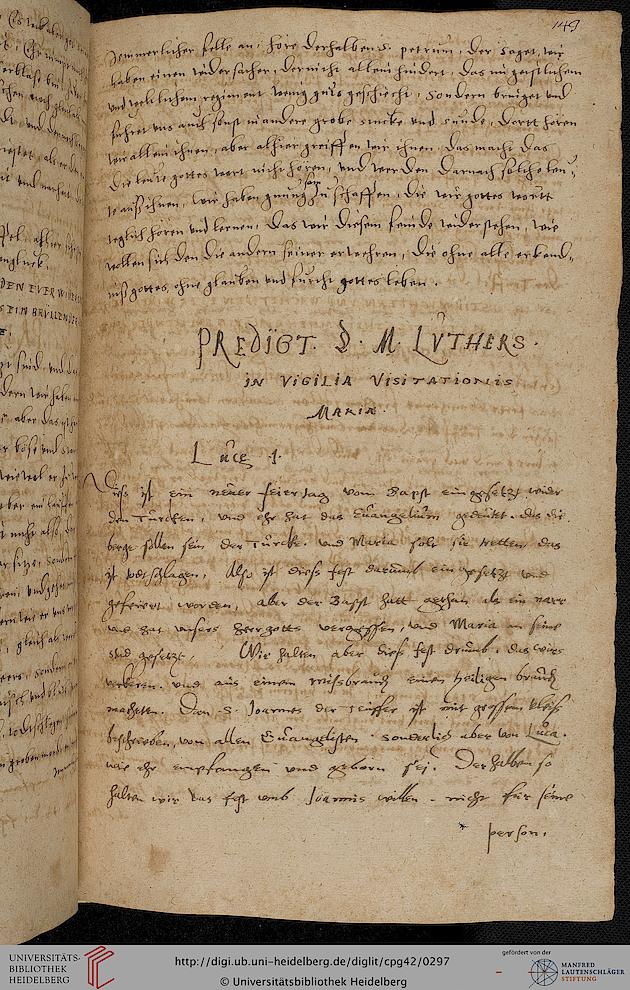 149
Jemmerlicher felle an, höre derhalben S. petrum, der saget, wir
haben einen widersacher, der nicht allein hindert, das im geistlichem
und weltlichem regiment wenig guts geschiecht, sondern bringet und
füheret uns auch sonst in andere grobe stucke und sünde, dortt hören
wir allein ihnen, aber alhier greiffen wir ihnen, das macht das
die leute gottes wort nicht hören, und werden darnach solche leu=
te aus ihnen, wir haben gnung zu schaffen, die wir gottes wortt
teglich hören und lernen, das wir diesem feinde widerstehen, wie
wollen sich den die andern seiner erwehren, die ohne alle erkend=
nus gottes, ohne glauben und furcht gottes leben.
PREDIGT. D. M. LUTHERS.
IN VIGILIA VISITATIONIS
MARIÆ.
Luce 1.
Dies ist ein neuer feiertag vom Bapst eingesetzt wider
den Turcken, und ehr hat das Euangelium gedeutet. das die
berge sollen sein der Turcke. und Maria solt sie tretten, das
ist todt schlagen, Also ist diess fest darumb eingesetzt und
gefeiert worden, aber der Bapst hatt gethan als ein narr
und hat unsers herrgotts vergessen, und Maria in seine
stad gesetzt, Wir halten aber diess fest drumb. das wirs
verkeren. und aus einem missbrauch einen heiligen brauch
machetten. Den S. Joannes der teuffer ist mit grossem vleiss
beschrieben, von allen Euangelisten. sonderlich aber von Luca.
wie ehr empfangen und geborn sej. Derhalben so
halten wir das fest umb Joannis willen. nicht fur seine
person,
UNIVERSITÄTS-
BIBLIOTHEK
HEIDELBERG
http://digi.ub.uni-heidelberg.de/diglit/cpg42/0297
© Universitätsbibliothek Heidelberg
gefördert von der
MANFRED
LAUTENSCHLÄGER
STIFTUNG